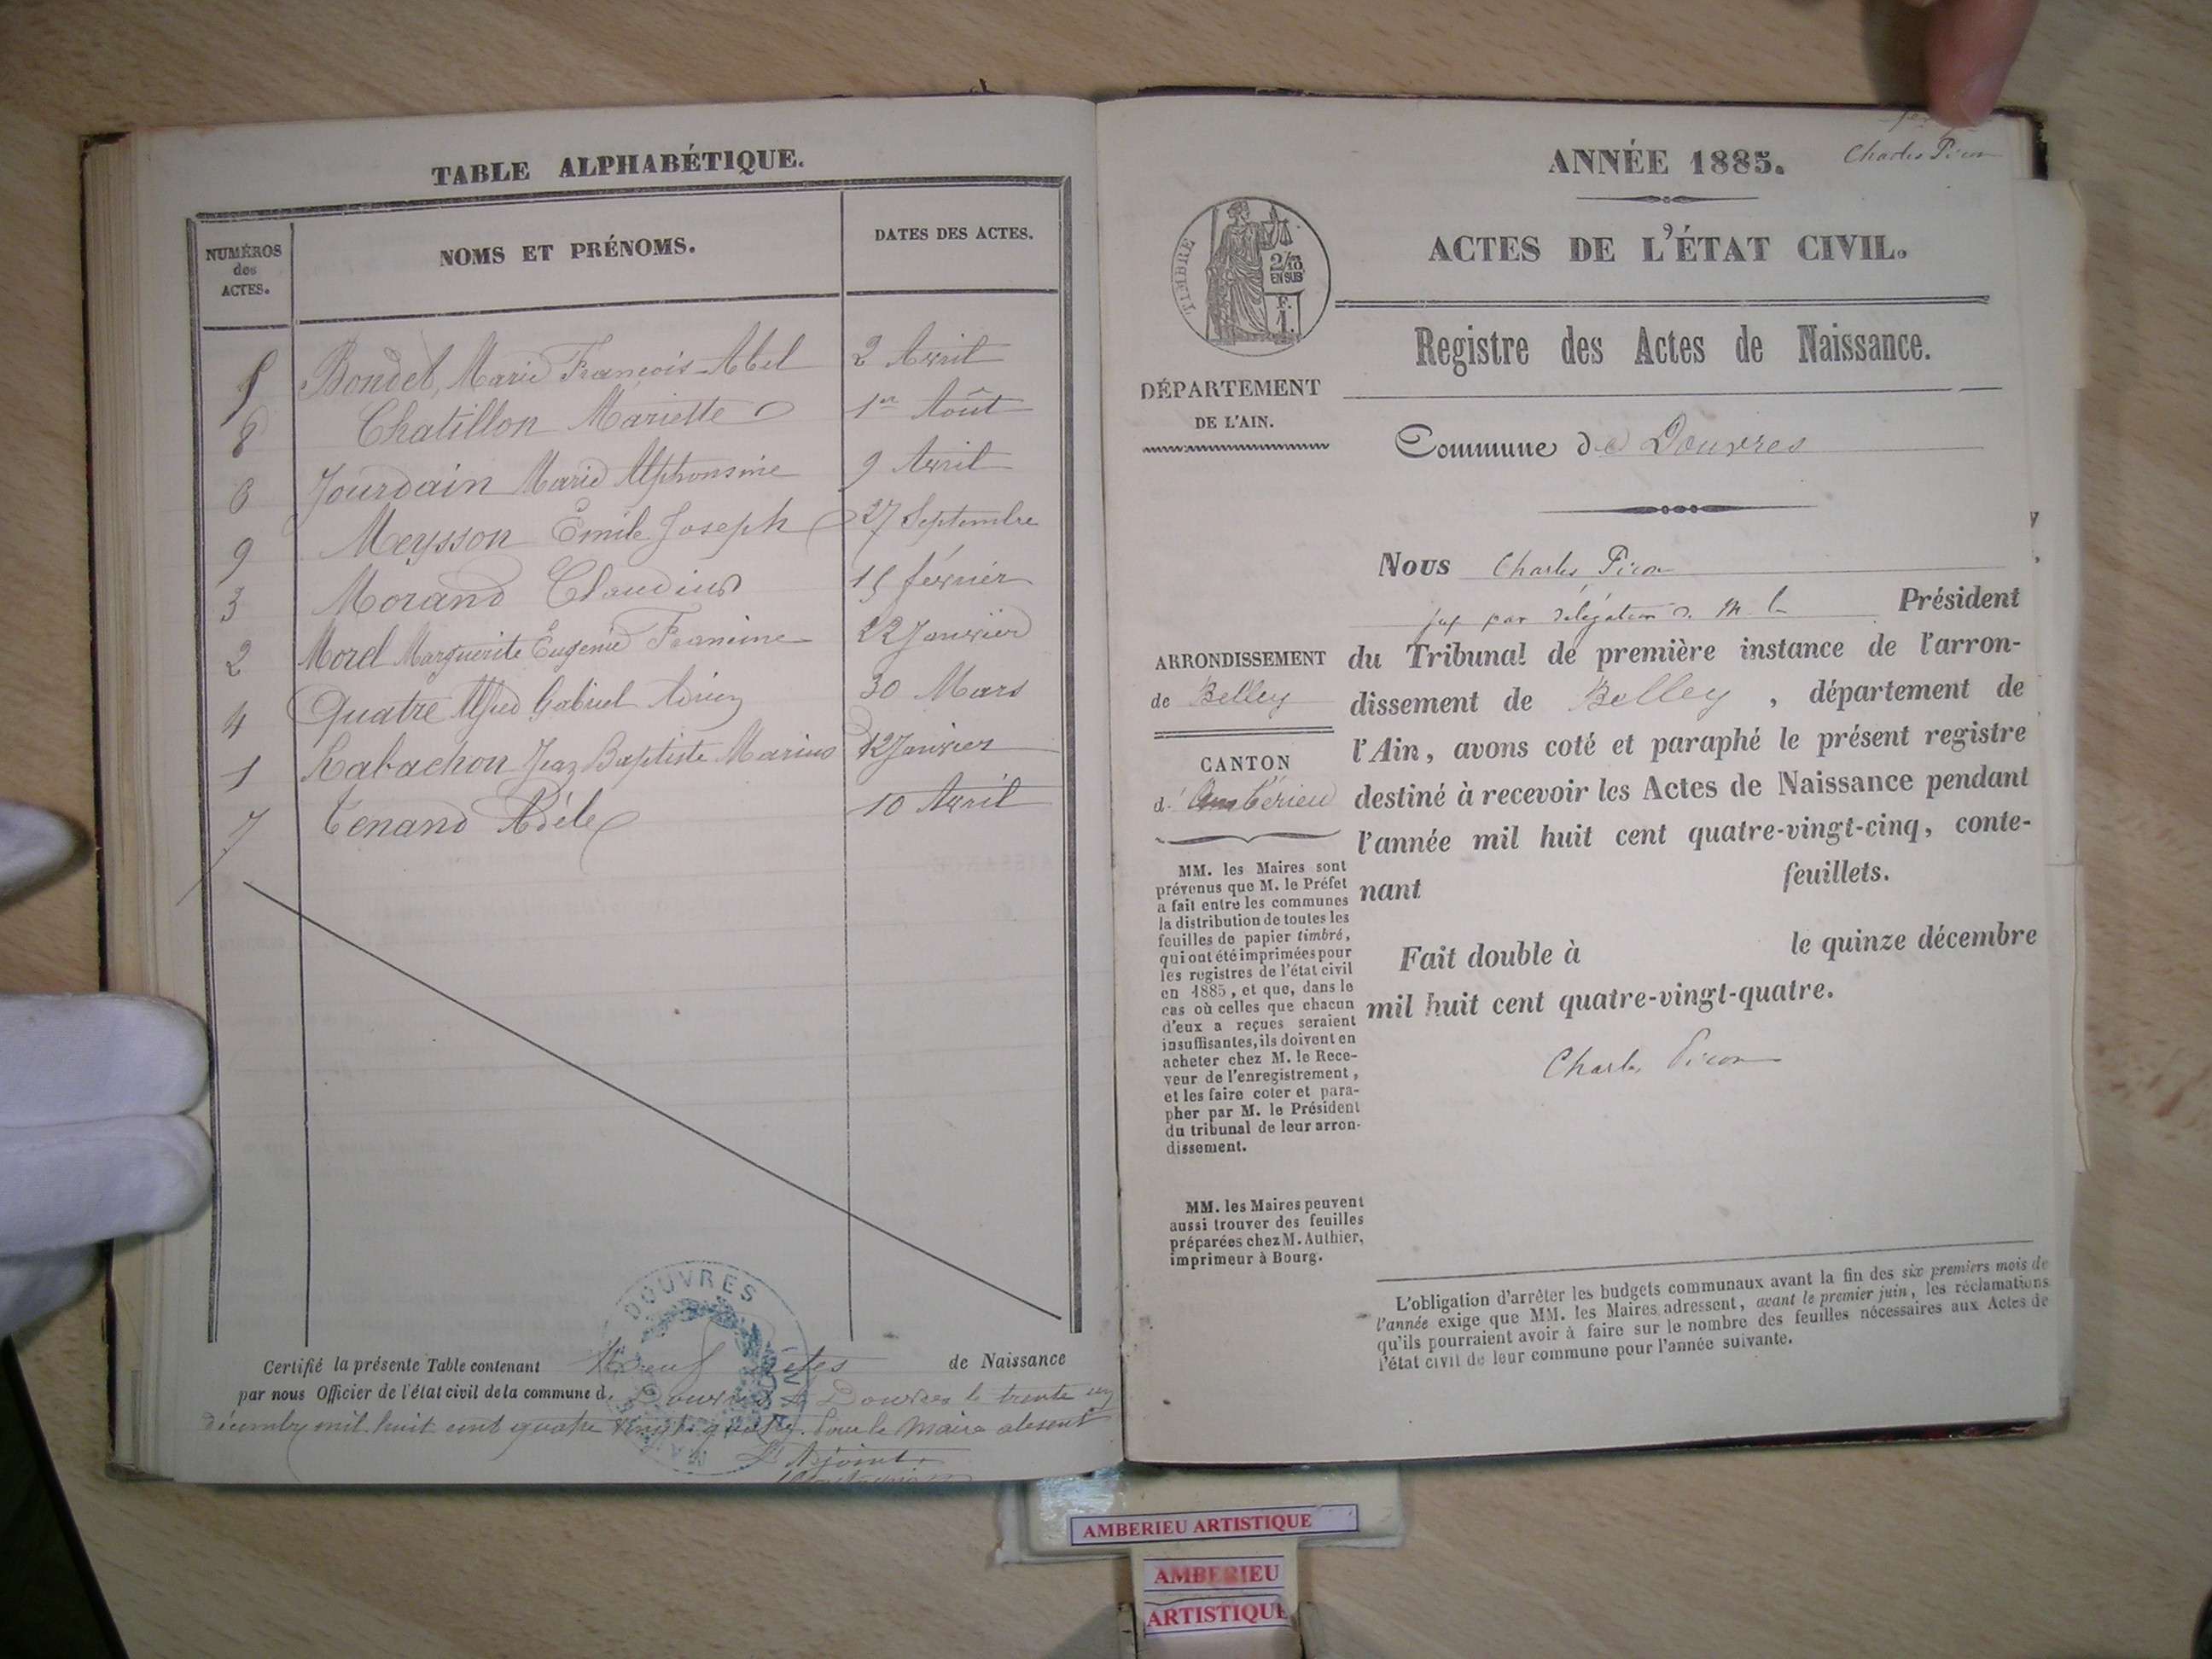 TABLE ALPHABÉTIQUE.
NUMÉROS des ACTES. NOMS ET PRÉNOMS. DATES DES ACTES.
5 Bondet, Marie François-Abel 2 Avril
8 Chatillon Mariette 1er Août
6 Jourdain Marie Alphonsine 9 Avril
9 Meysson Emile Joseph 27 Septembre
3 Morand Claudius 15 février
2 Morel Marguerite Eugenie Francine 22 Janvier
4 Quatre Alfred Gabriel Adrien 30 Mars
1 Rabachon Jean Baptiste Marius 12 Janvier
7 Tenand Adèle 10 Avril
Certifié la présente Table contenant neuf actes de Naissance
par nous Officier de l'état civil de la commune de Douvres à Douvres le trente un
décembre mil huit cent quatre vingt quatre. Pour le Maire absent
L'Adjoint
DOUVRES
Charles Picon
ANNÉE 1885.
ACTES DE L'ÉTAT CIVIL.
TIMBRE
2/10 EN SUS
F. 1.
Registre des Actes de Naissance.
DÉPARTEMENT
DE L'AIN.
Commune de Douvres
Nous Charles Picon
juge par délégation de M. le Président
du Tribunal de première instance de l'arron-
dissement de Belley, département de
l'Ain, avons coté et paraphé le présent registre
destiné à recevoir les Actes de Naissance pendant
l'année mil huit cent quatre-vingt-cinq, conte-
nant feuillets.
Fait double à le quinze décembre
mil huit cent quatre-vingt-quatre.
Charles Picon
ARRONDISSEMENT
de Belley
CANTON
d'Ambérieu
MM. les Maires sont
prévenus que M. le Préfet
a fait entre les communes
la distribution de toutes les
feuilles de papier timbré,
qui ont été imprimées pour
les registres de l'état civil
en 1885, et que, dans le
cas où celles que chacun
d'eux a reçues seraient
insuffisantes, ils doivent en
acheter chez M. le Rece-
veur de l'enregistrement,
et les faire coter et para-
pher par M. le Président
du tribunal de leur arron-
dissement.
MM. les Maires peuvent
aussi trouver des feuilles
préparées chez M. Authier,
imprimeur à Bourg.
L'obligation d'arrêter les budgets communaux avant la fin des six premiers mois de
l'année exige que MM. les Maires adressent, avant le premier juin, les réclamations
qu'ils pourraient avoir à faire sur le nombre des feuilles nécessaires aux Actes de
l'état civil de leur commune pour l'année suivante.
AMBERIEU ARTISTIQUE
AMBERIEU
ARTISTIQUE